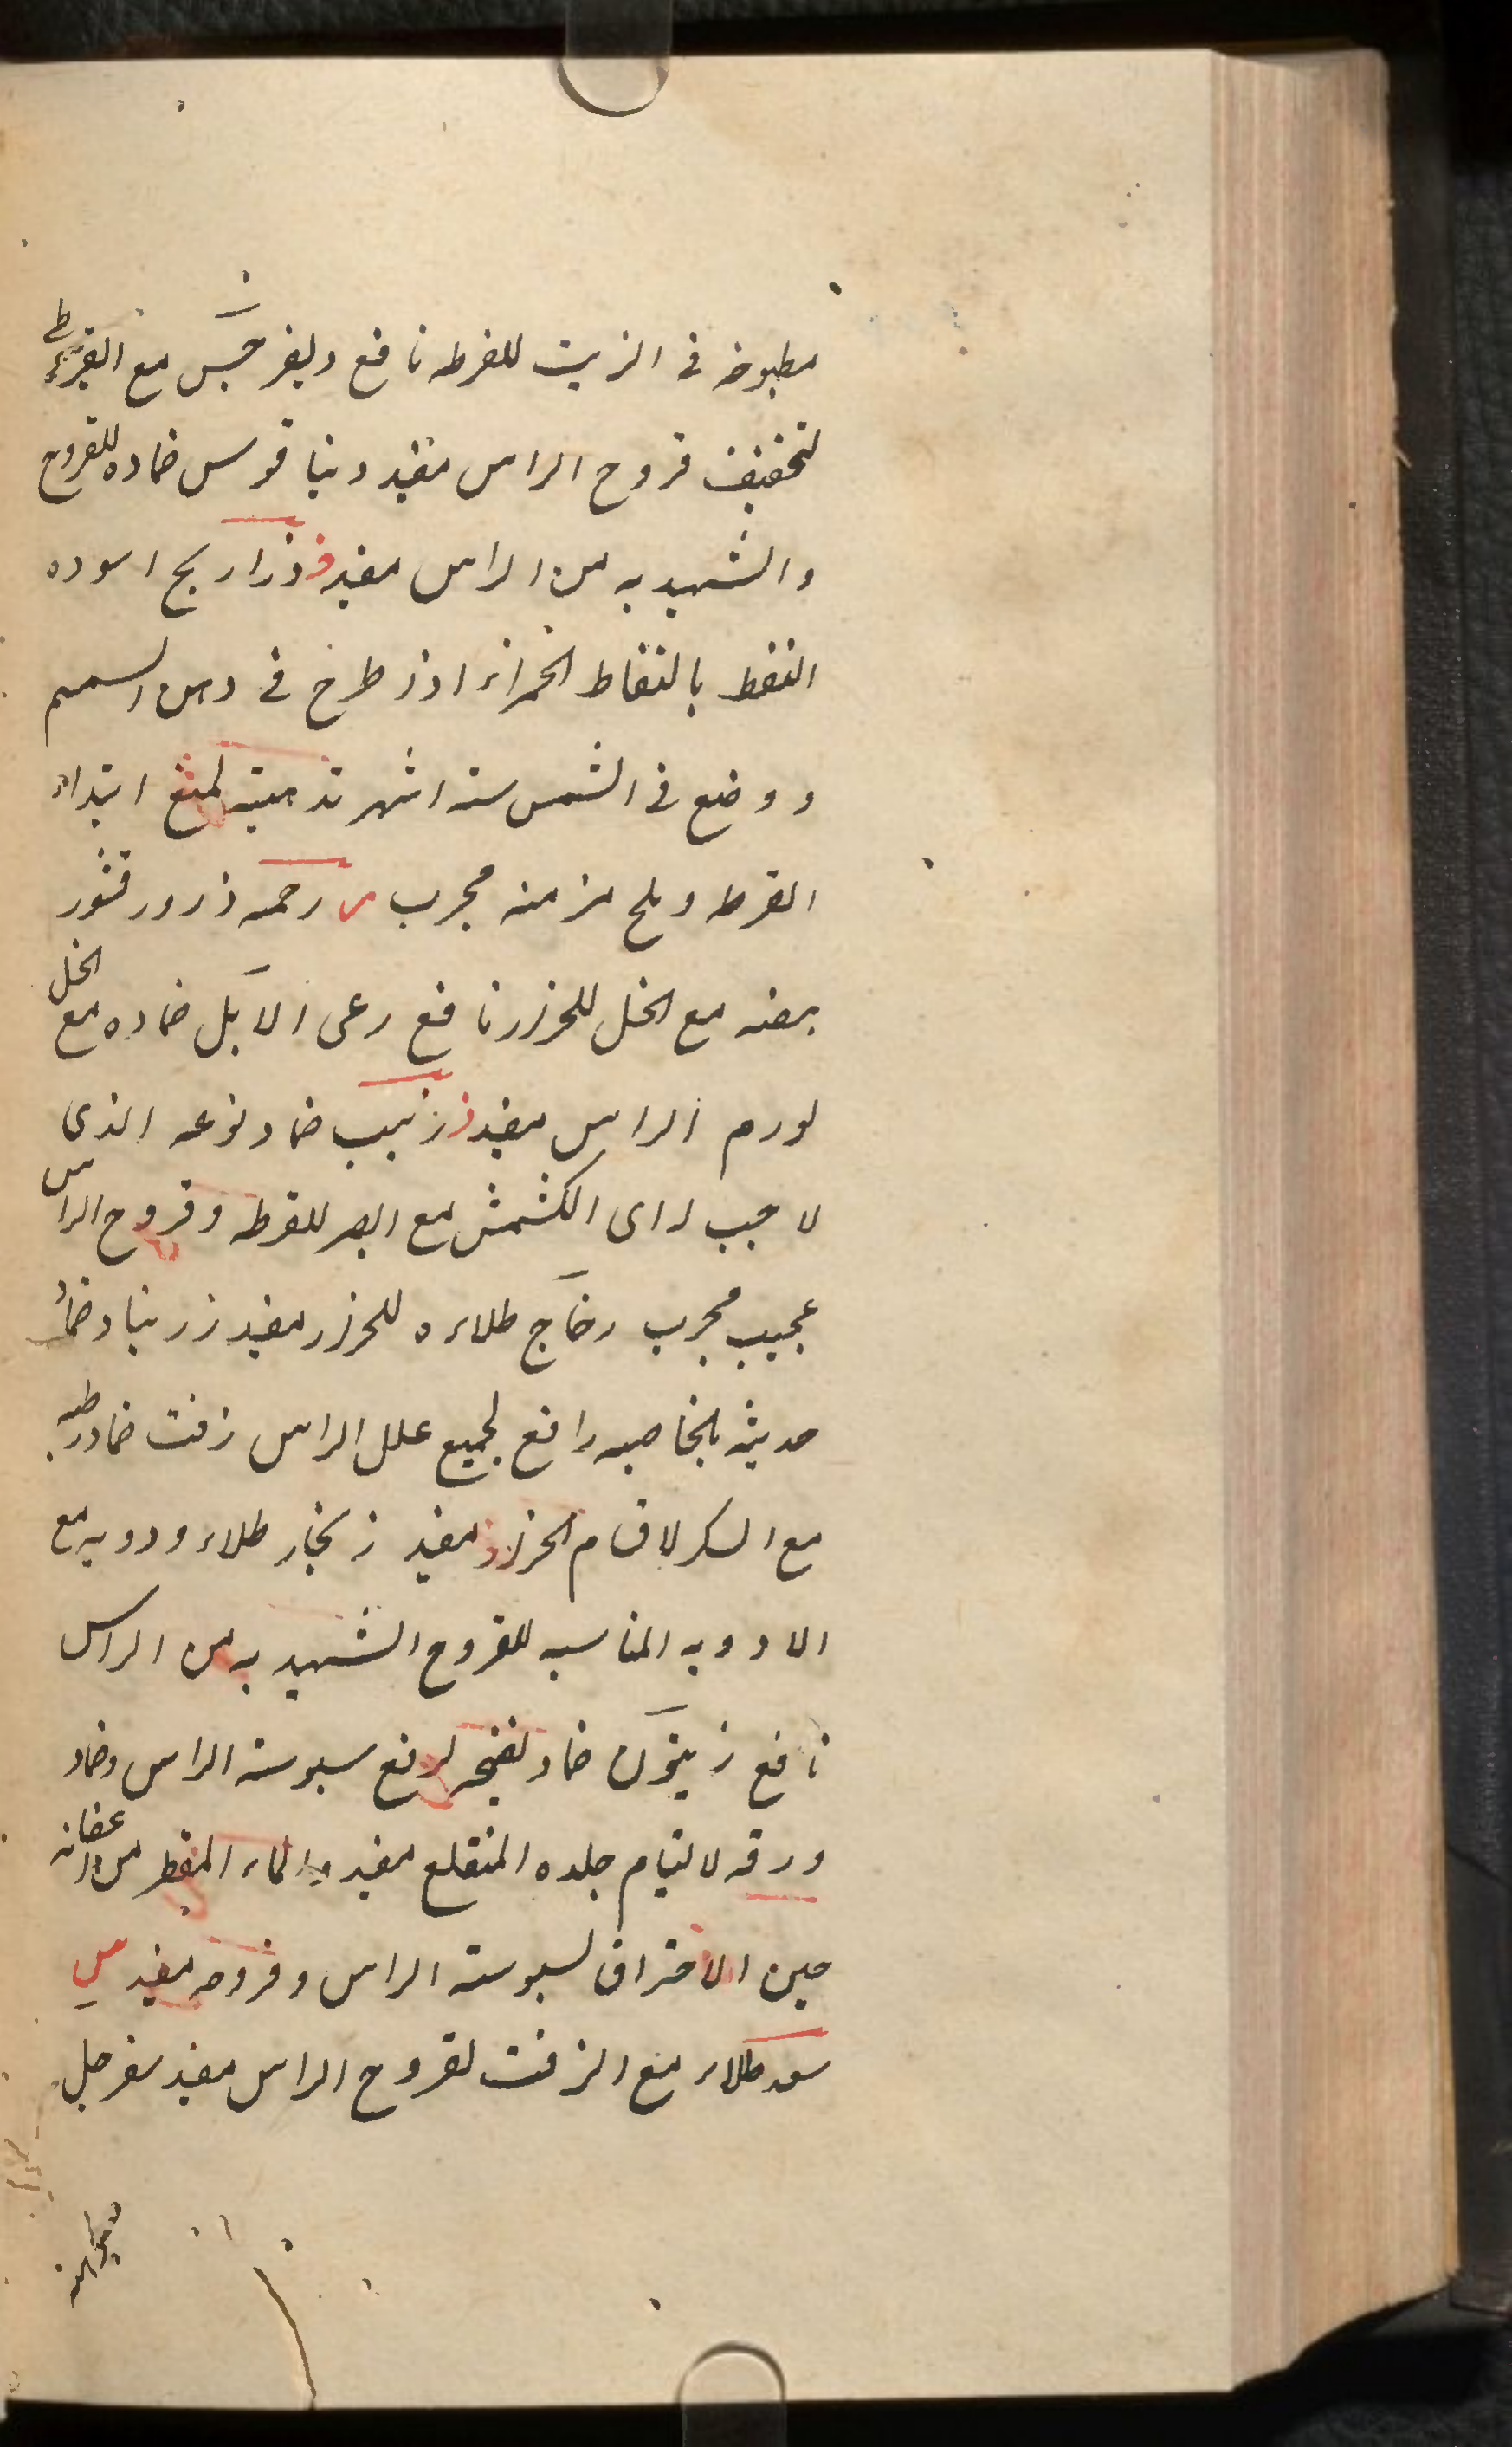 مطبوخه فی الزیت للقرطه نافع دیفرجَس مع القیروطی
لتجفیف قروح الراس مفید دیناقوس ضماده للقروح
والشهدیه من الراس مفید ذ ذراریح اسوده
النقط بالنقاط الحمراء اذا طرح فی دهن السمسم
ووضع فی الشمس سته اشهر تدهینه لمنع ابتداء
القرطه ومزمنه مجرب ر رحمه ذرور قشور
بیضه مع الخل للحزاز نافع رعی الاَبل ضماده مع الخل
لورم الراس مفید ز زبیب ضماد نوعه الذی
لا حب له ای الکشمش مع الصبر للقرطه وقروح الراس
عجیب مجرب زجاج طلاءه للحزاز مفید زرنباد ضماد
حدیثه بالخاصیه رافع لجمیع علل الراس زفت ضماد رطبه
مع السکر لاقسام الحزاز مفید زنجار طلاء ودویه مع
الادویه المناسبه للقروح الشهدیه من الراس
نافع زیتون ضماد لرفع یبوسته الراس وضماد
ورقه لالتیام جلده المنقلع مفید والماء المقطر من اغصانه
حین الاحتراق لیبوسته الراس وقروحه مفید س
سعد طلاء مع الزفت لقروح الراس مفید سفرجل